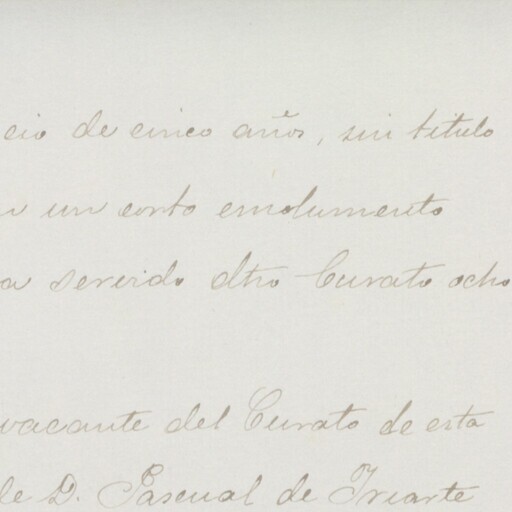 cio de cinco años, sin titulo
un corto emolumento
a servido dho Curato ocho
vacante del Curato de esta
de D. Pascual de Iriarte